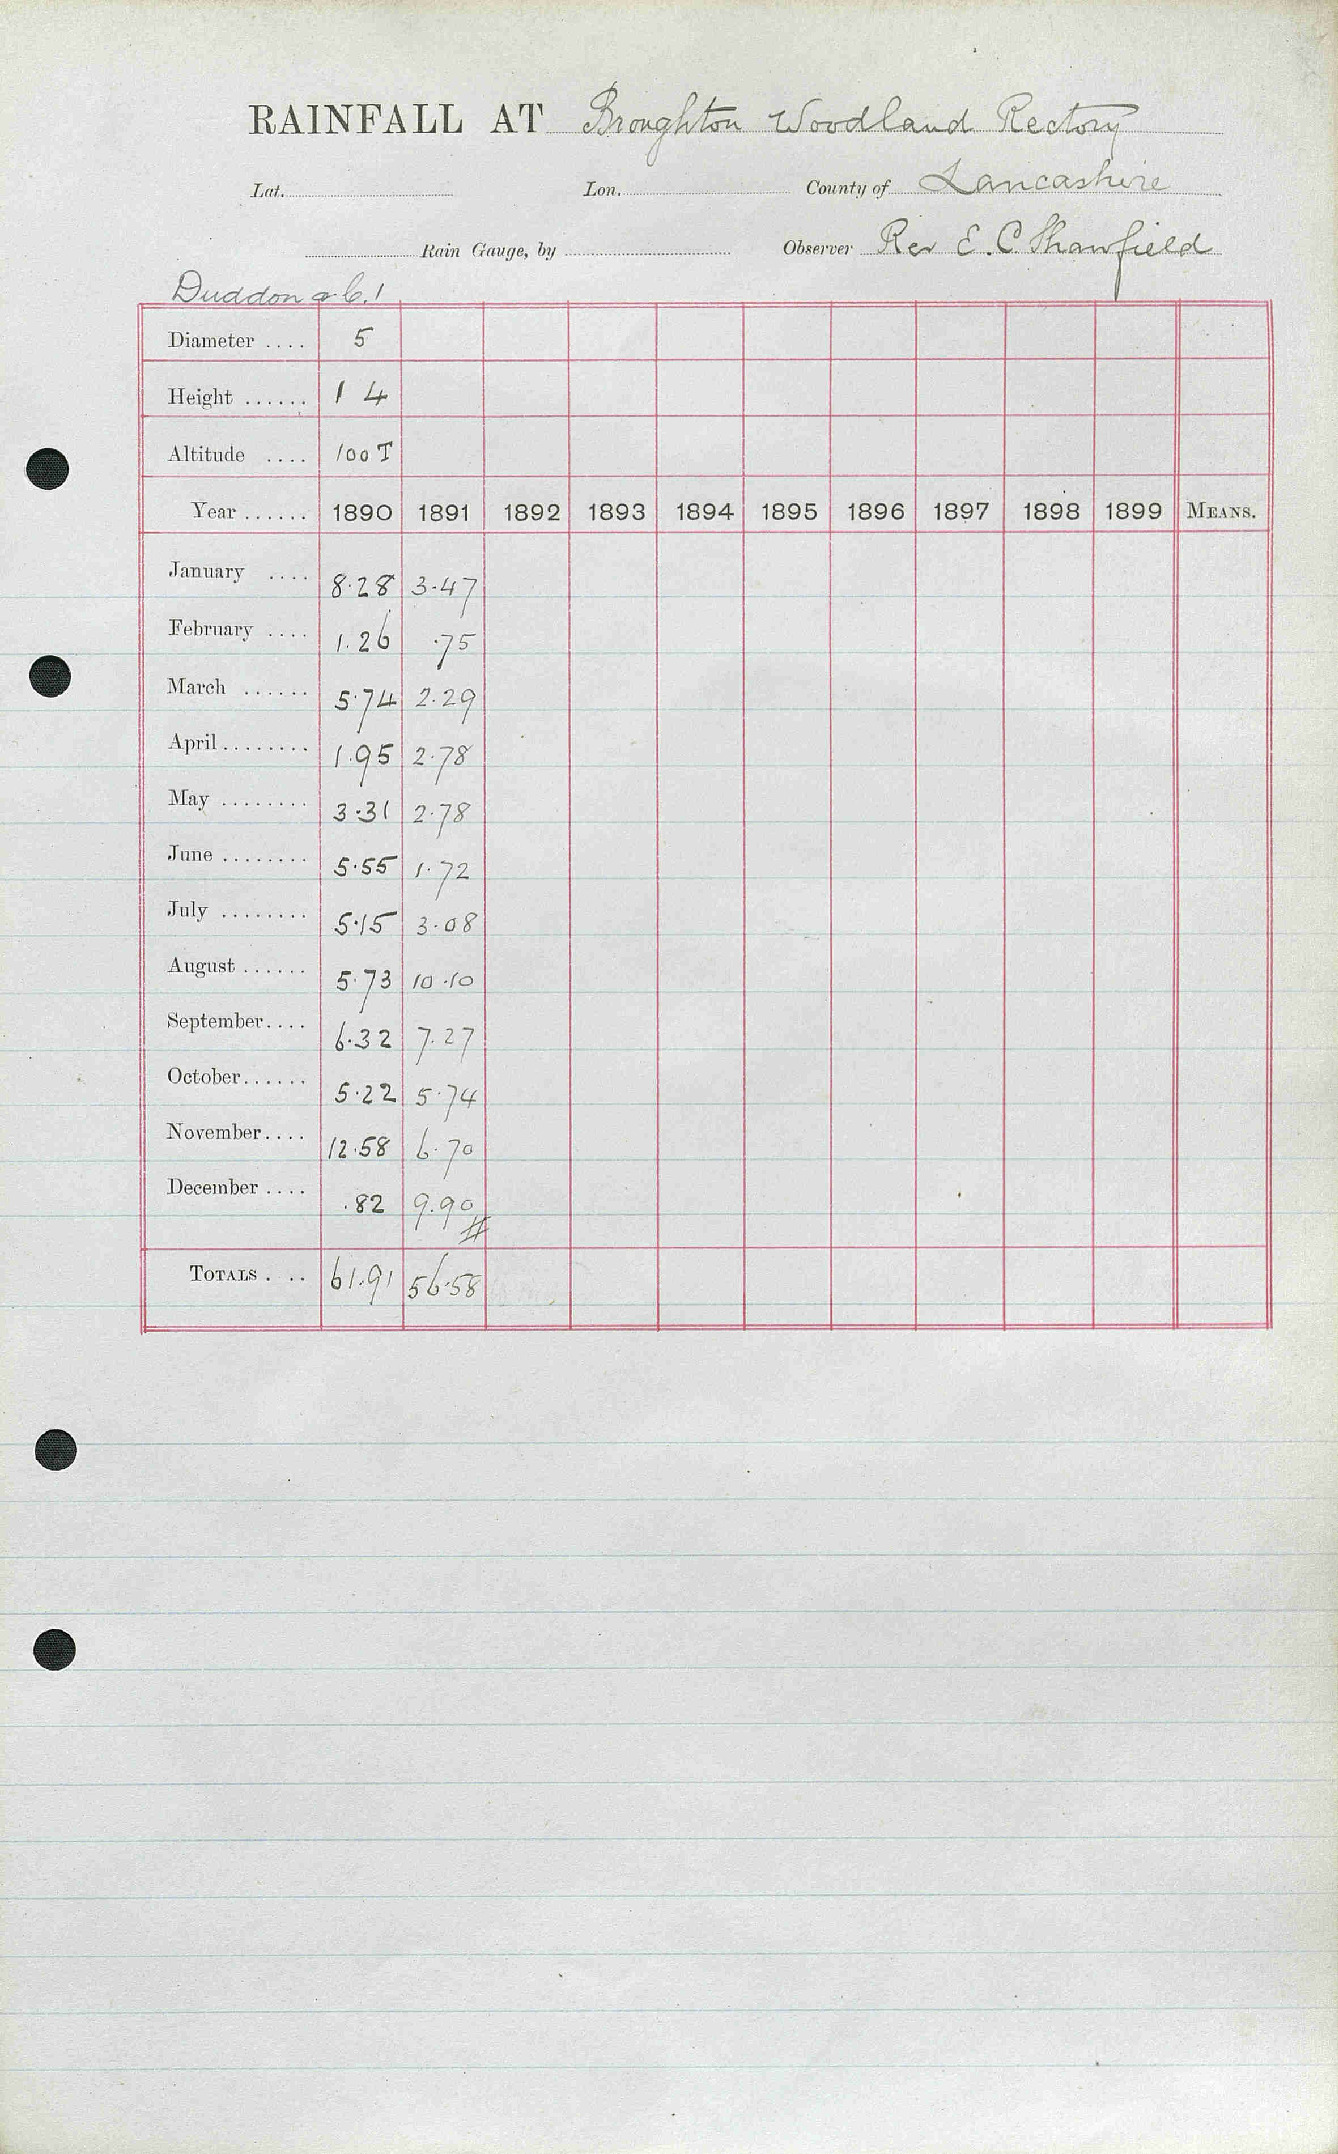 RAINFALL AT Broughton Woodland Rectory
Lat. Lon. County of Lancashire
Rain Gauge, by Observer Rev E. C.
Duddon
Diameter .... 5
Height ...... 1 4
Altitude .... 100 T
Year ...... 1890 1891 1892 1893 1894 1895 1896 1897 1898 1899 MEANS.
January .... 8.28 3.47
February .... 1.26 .75
March ...... 5.74 2.29
April ........ 1.95 2.78
May ........ 3.31 2.78
June ........ 5.55 1.72
July ........ 5.15 3.08
August ...... 5.73 10.10
September .... 6.32 7.27
October ...... 5.22 5.74
November .... 12.58 6.70
December .... .82 9.90
#
TOTALS . .. 61.91 56.58